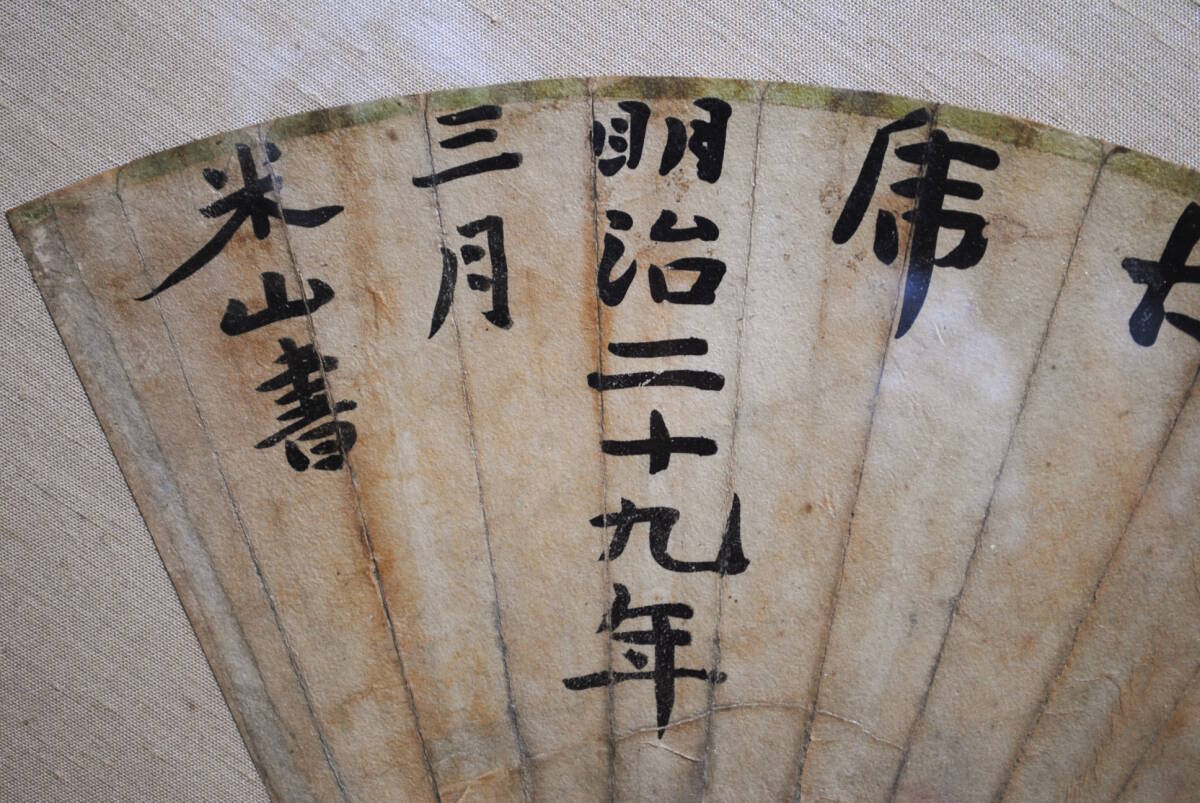 明治二十九年
三月
米山書